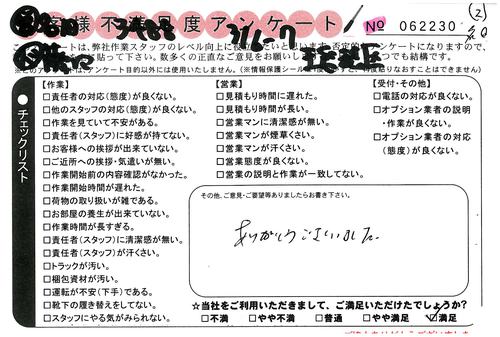 お客様不満足度アンケート
No 062230
(2)
このアンケートは、弊社作業スタッフのレベル向上に役立たいと思います。否定的なアンケートになりますので、
貼って下さい。数多くの正直なご意見をお願いし
つでも結構です。
アンケート目的以外には使用いたしません。(※情報保護シール
貼りなおすことはできません)
●チェックリスト
【作業】
□責任者の対応(態度)が良くない。
□他のスタッフの対応(態度)が良くない。
□作業を見ていて不安がある。
□責任者(スタッフ)に好感が持てない。
□お客様への挨拶が出来ていない。
□ご近所への挨拶・気遣いが無い。
□作業開始前の内容確認がなかった。
□作業開始時間が遅れた。
□荷物の取り扱いが雑である。
□お部屋の養生が出来ていない。
□作業時間が長すぎる。
□責任者(スタッフ)に清潔感が無い。
□責任者(スタッフ)が汗くさい。
□トラックが汚い。
□梱包資材が汚い。
□運転が不安(下手)である。
□靴下の履き替えをしてない。
□スタッフにやる気がみられない。
【営業】
□見積もり時間に遅れた。
□見積もり時間が長い。
□営業マンに清潔感が無い。
□営業マンが煙草くさい。
□営業マンが汗くさい。
□営業態度が良くない。
□営業の説明と作業が一致してない。
【受付・その他】
□電話の対応が良くない。
□オプション業者の説明
・作業が良くない。
□オプション業者の対応
(態度)が良くない。
その他、ご意見・ご要望等ありましたらお書き下さい。
ありがとうございました。
☆当社をご利用いただきまして、ご満足いただけたでしょうか?
□不満 □やや不満 □普通 □やや満足 ☑満足